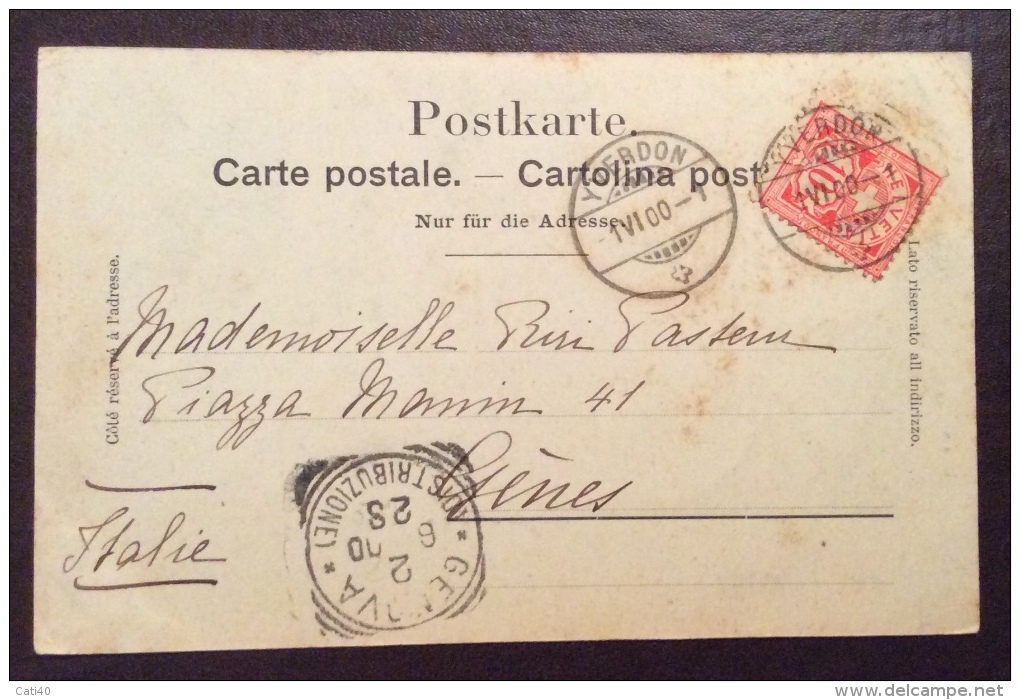 Postkarte.
Carte postale. — Cartolina post
Nur für die Adresse
Côté réservé à l'adresse.
Lato riservato all indirizzo.
YVERDON
-1VI00-1
YVERDON
1VI00-1
HELVETIA
10
Mademoiselle
Piazza Manin 41
Gênes
Italie
GENOVA
(DISTRIBUZIONE)
Cati40
delcampe.net